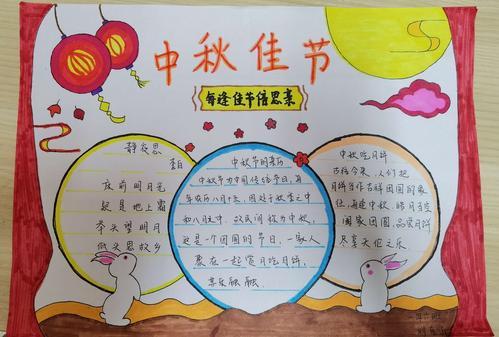 中秋佳节
每逢佳节倍思亲
静夜思
李白
床前明月光
疑是地上霜
举头望明月
低头思故乡
中秋节的来历
中秋节为中国传统节日，为
年农历八月十五，因处于秋季之中
和八月之中，故民间称为中秋，
这是一个团圆的节日，一家人
聚在一起赏月吃月饼，
其乐融融。
中秋吃月饼
古往今来，人们把
月饼当作吉祥团圆的象
征，每逢中秋，皓月当空
阖家团圆，品尝月饼
尽享天伦之乐。